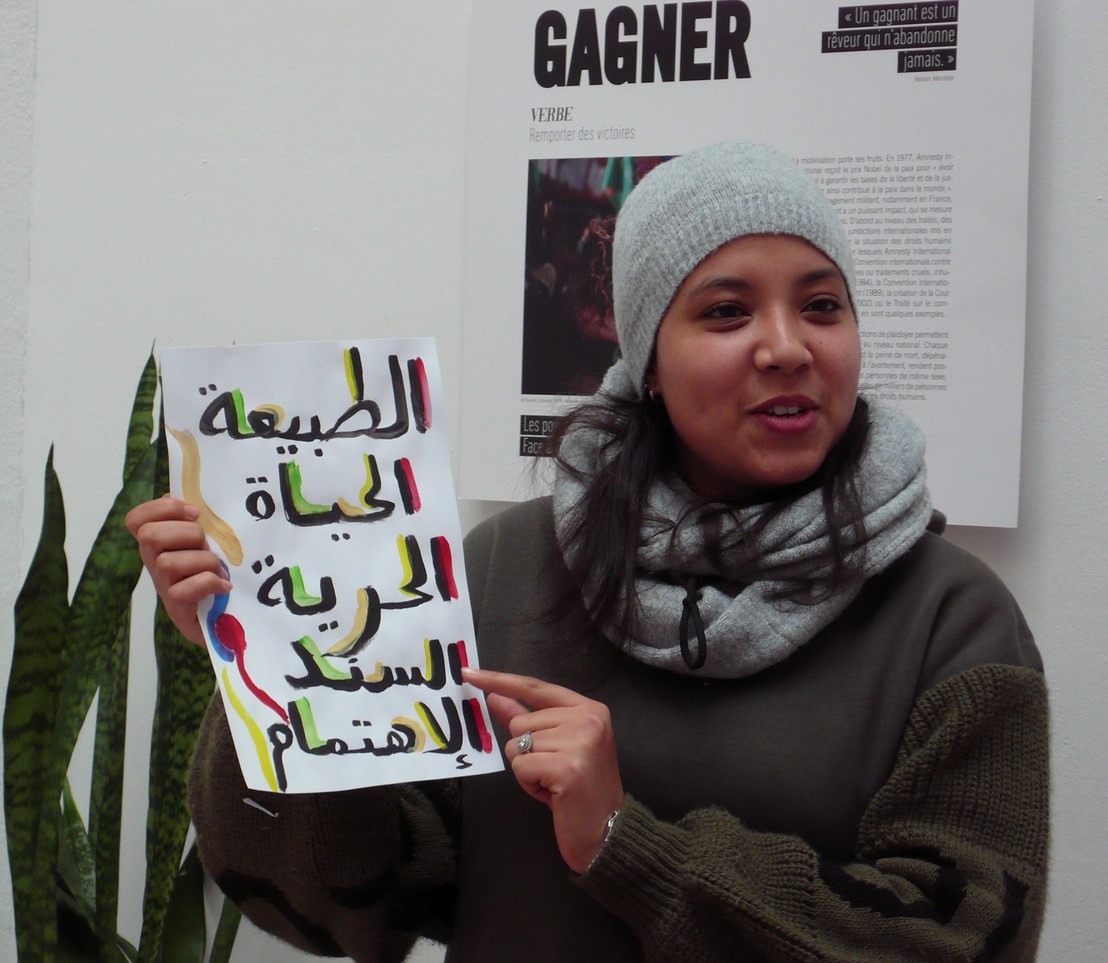 GAGNER
« Un gagnant est un
rêveur qui n'abandonne
jamais. »
Nelson Mandela
VERBE
Remporter des victoires
mobilisation porte ses fruits. En 1977, Amnesty In-
reçoit le prix Nobel de la paix pour « avoir
à garantir les bases de la liberté et de la jus-
ainsi contribué à la paix dans le monde ».
militant, notamment en France,
a un puissant impact, qui se mesure
D'abord au niveau des traités, des
juridictions internationales mis en
la situation des droits humains
lesquels Amnesty International
Convention internationale contre
ou traitements cruels, inhu-
la Convention internatio-
(1989), la création de la Cour
ou le Traité sur le com-
en sont quelques exemples.
de plaidoyer permettent
au niveau national. Chaque
la peine de mort, dépéna-
l'avortement, rendent pos-
personnes de même sexe,
milliers de personnes
droits humains.
Les
Face
الطبيعة
الحياة
الحرية
السند
الإهتمام